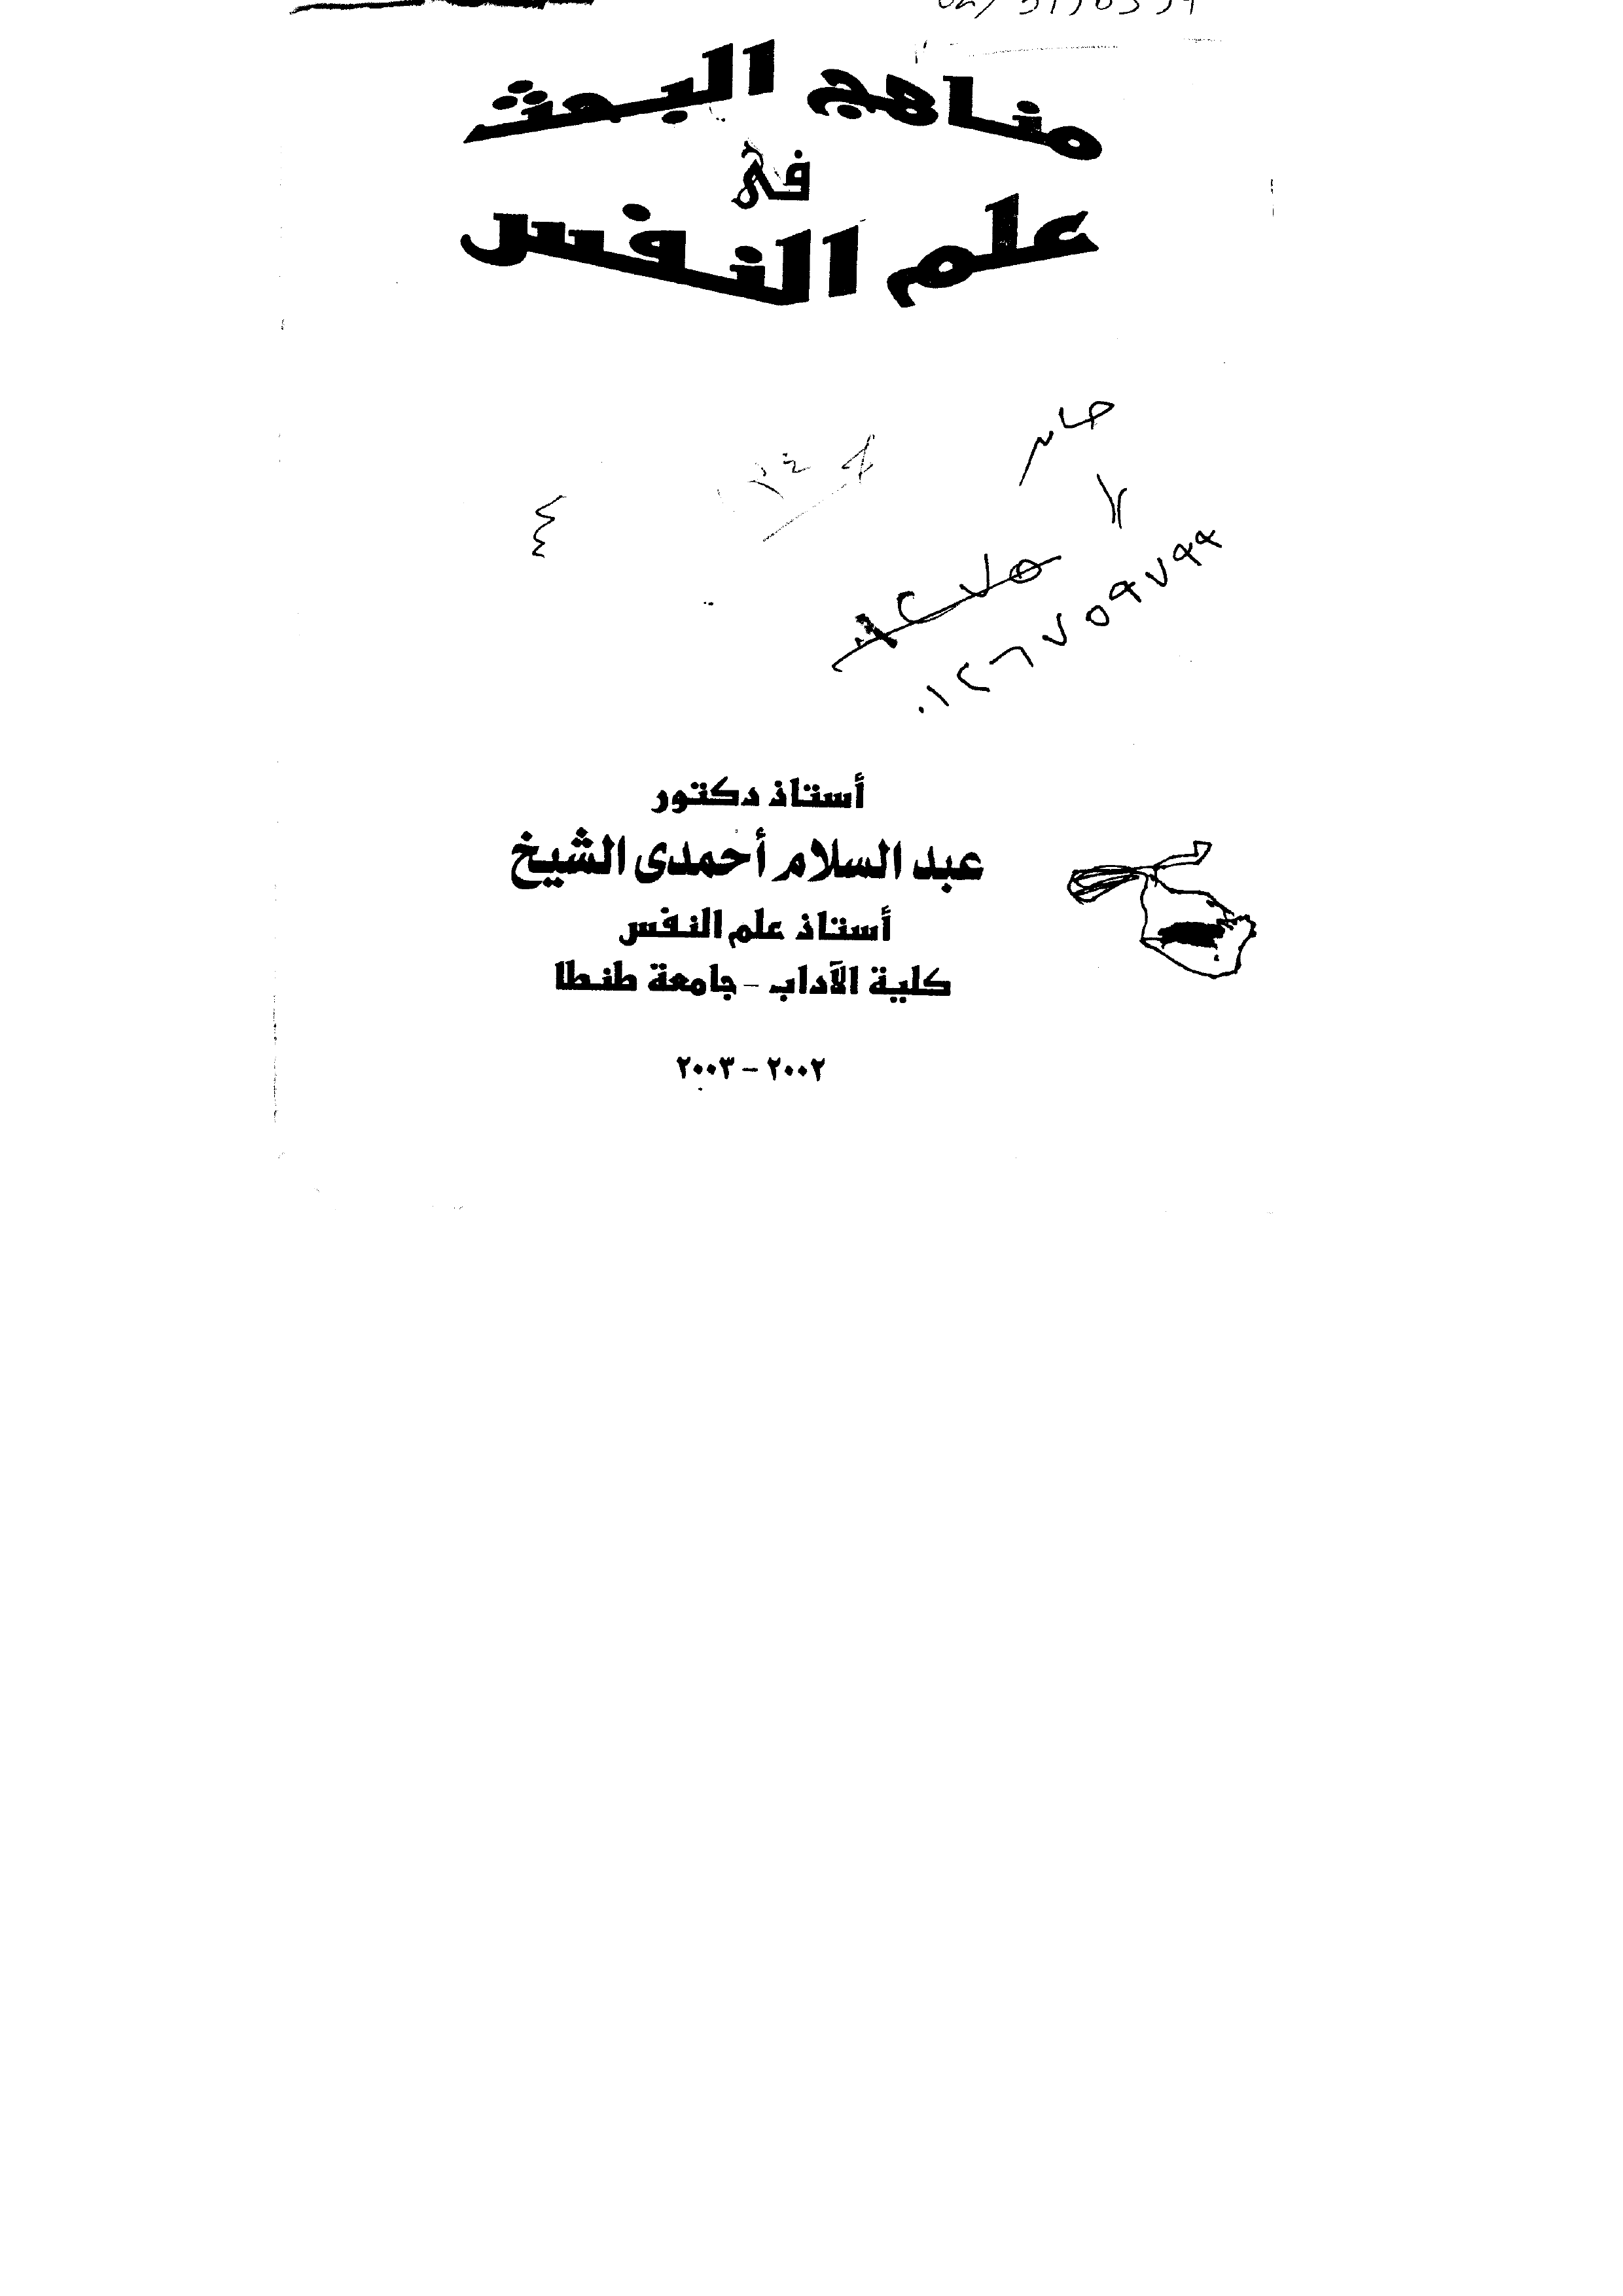 مناهج البحث
فى
علم النفس
٤
٠١٢٦٧٥٩٧٩٩
أستاذ دكتور
عبد السلام أحمدى الشيخ
أستاذ علم النفس
كلية الآداب - جامعة طنطا
٢٠٠٢ - ٢٠٠٣